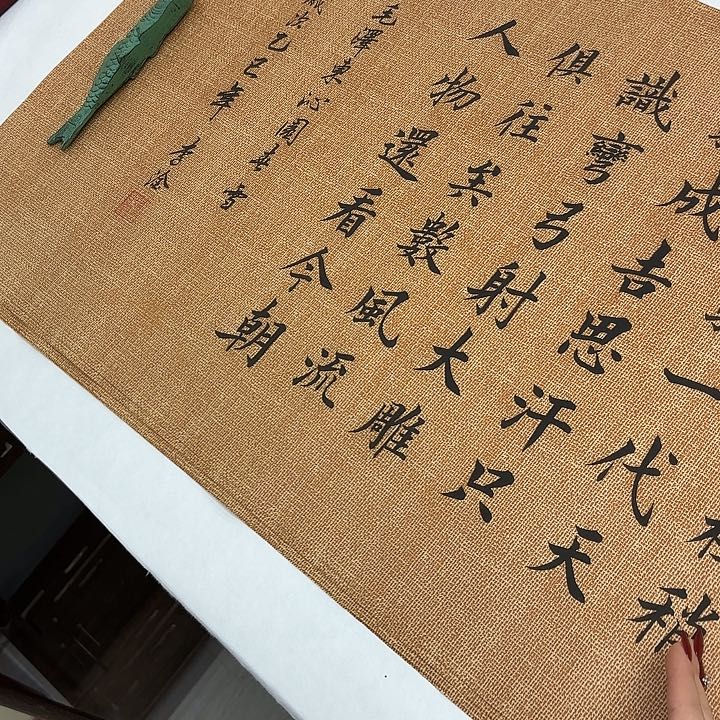 稍
一代天
成吉思汗只
識彎弓射大雕
俱往矣數風流
人物還看今朝
毛澤東沁園春雪
歲次乙巳年 李